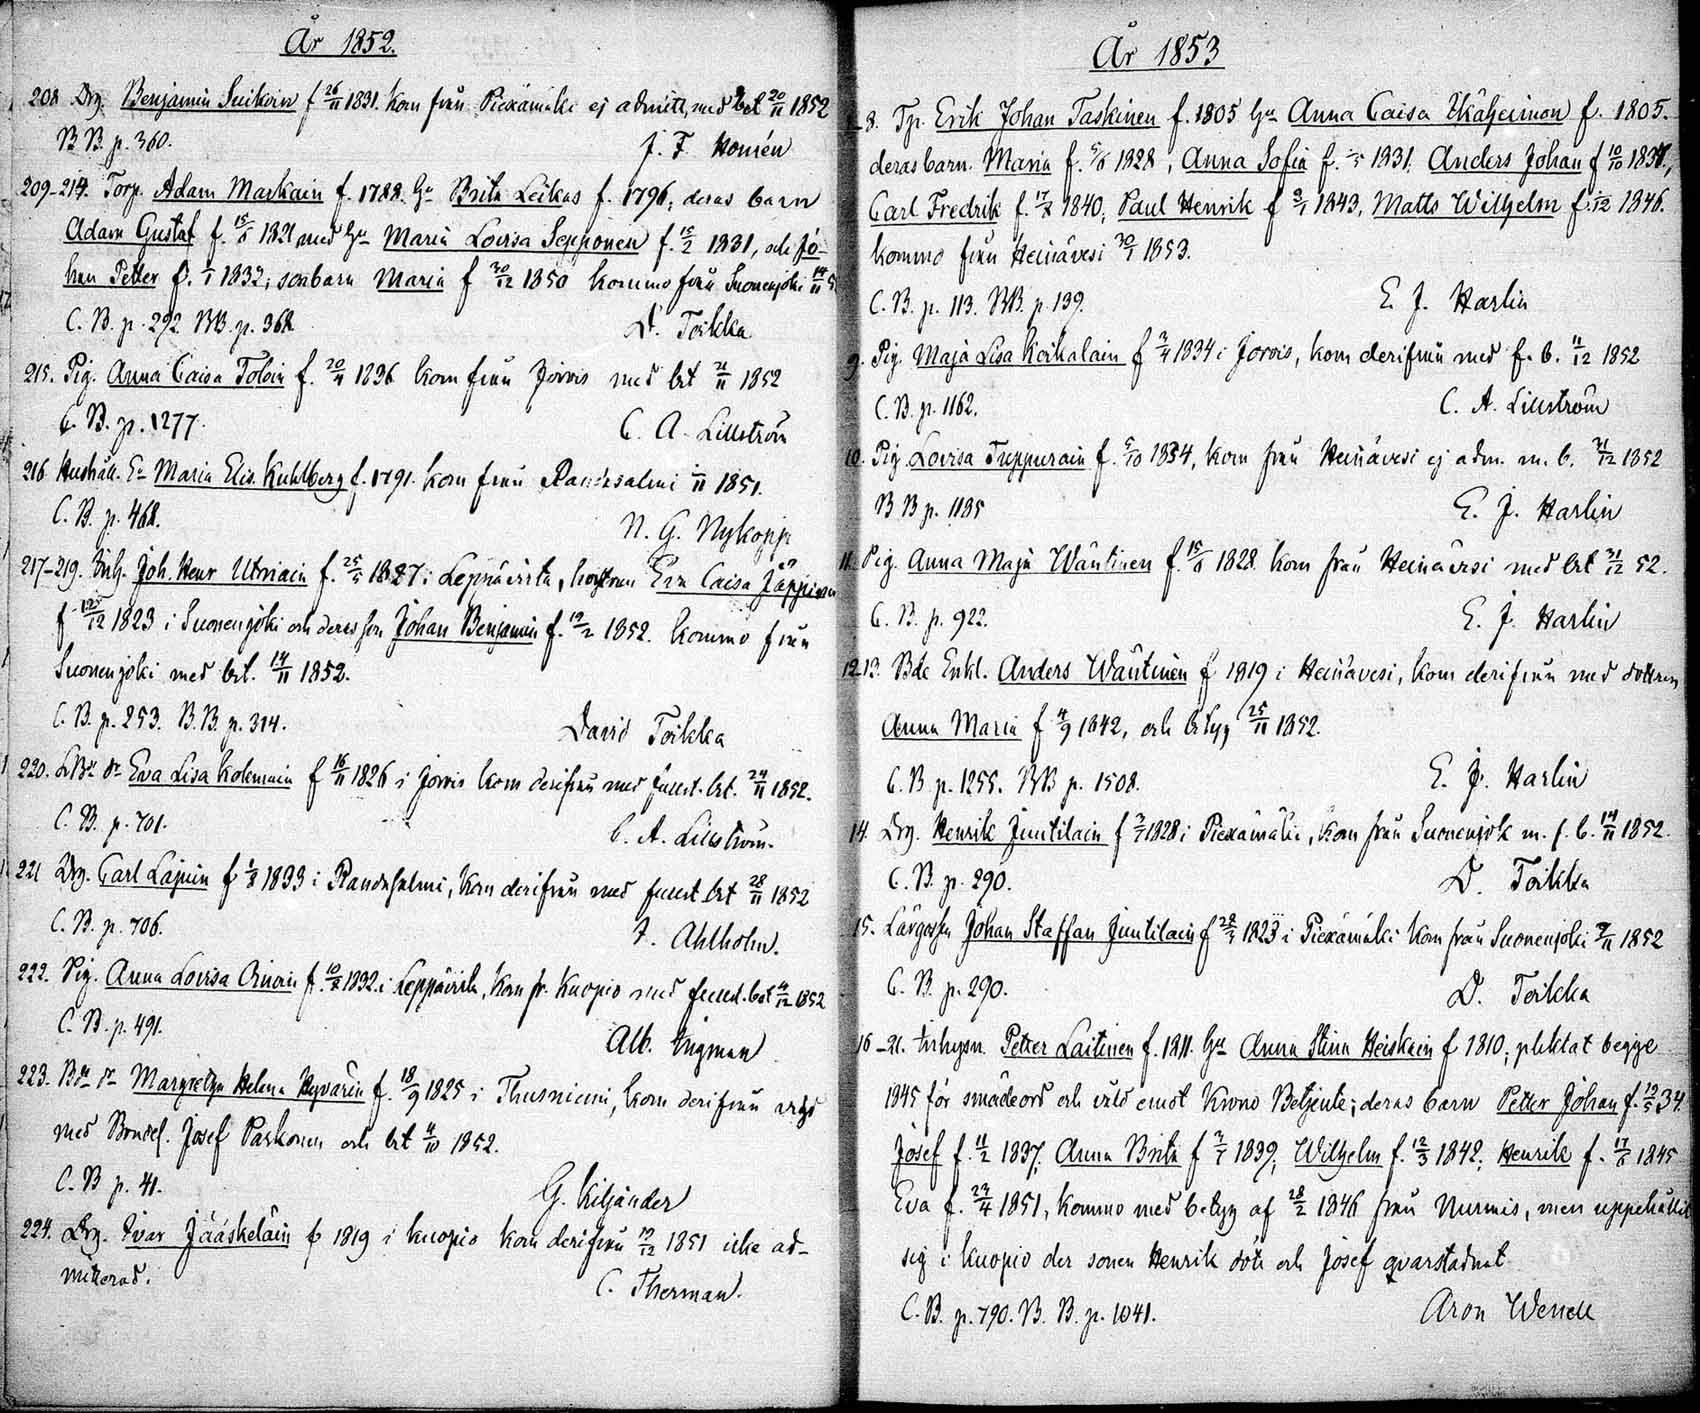 År 1852.
208 Drg. Benjamin Suikoin f 26/11 1831. kom från Piexämäki ej admitt, med bet 20/11 1852
BB. p. 360.
J. F. Homén
209-214. Torp. Adam Markain f. 1788. Hu Brita Leikas f. 1796; deras barn
Adam Gustaf f. 15/6 1821 med Hu Maria Lovisa Sepponen f. 15/2 1831, och Jo-
han Petter f. 1/1 1832; sonbarn Maria f 30/12 1850 kommo från Suonenjoki 14/11
C. B. p. 292. BB. p. 368.
D. Toikka
215. Pig. Anna Caisa Tobin f. 20/4 1836 kom från Jorois med bet 21/11 1852
C. B. p. 1277.
C. A. Lillström
216 Hushåll. Maria Elis. Kuhlberg f. 1791. kom från Randasalmi 11 1851.
C. B. p. 468.
N. G. Nykopp
217-219. Inh. Joh. Henr Utriain f. 25/5 1827 i Leppävirta, hustrun Eva Caisa Jäppinen
f 12/12 1823 i Suonenjoki och deras son Johan Benjamin f. 19/2 1852. kommo från
Suonenjoki med bet. 14/11 1852.
C. B. p. 253. B.B. p. 314.
David Toikka
220. Eva Lisa Kolemain f 16/11 1826 i Jorois kom derifrån med bet. 24/11 1852.
C. B. p. 701.
C. A. Lillström.
221 Drg. Carl Lajuin f 1/8 1833 i Randasalmi, kom derifrån med bet 28/11 1852
C. B. p. 706.
F. Ahlholm.
222. Pig. Anna Lovisa Oinoin f. 10/8 1832. i Leppävirta, kom fr. Kuopio med bet 4/12 1852
C. B. p. 491.
Alb. Ingman
223. Bdr dr Margretha Helena Hyvärin f. 18/9 1825 i Thusniemi, kom derifrån
med Bondes. Josef Paskonen och bet 4/10 1852.
C. B p. 41.
G. Kiljander
224. Drg. Ivar Jääskeläin f 1819 i Kuopio kom derifrån 19/12 1851 icke ad-
mitterad.
C. Therman.
År 1853
8. Tp. Erik Johan Taskinen f. 1805 Hu Anna Caisa Ikäheimon f. 1805.
deras barn. Maria f. 5/6 1828, Anna Sofia f. 1831. Anders Johan f 10/10 1837,
Carl Fredrik f. 17/8 1840, Paul Henrik f 9/1 1843, Matts Wilhelm f. 1/12 1846.
kommo från Heinävesi 30/1 1853.
C. B. p. 113. BB. p. 139.
E. J. Harlin
9. Pig. Maja Lisa Koikalain f 3/4 1834 i Jorois, kom derifrån med f. b. 11/12 1852
C. B. p. 1162.
C. A. Lillström
10. Pig. Lovisa Tuppurain f. 5/10 1834, kom från Heinävesi ej adm. m. b. 31/12 1852
BB p. 1135
E. J. Harlin
11. Pig. Anna Maja Wäntinen f. 15/6 1828 kom från Heinävesi med bet 31/12 52.
C. B. p. 922.
E. J. Harlin
12.13. Bde Enkl. Anders Wäntinen f 1819 i Heinävesi, kom derifrån med dottren
Anna Maria f 4/9 1842, och betyg 25/11 1852.
C. B p. 1255. BB p. 1508.
E. J. Harlin
14. Drg. Henrik Juntilain f 1828 i Piexämäki, kom från Suonenjok m. f. b. 14/11 1852.
C. B. p. 290.
D. Toikka
15. Lärgossen Johan Staffan Juntilain f 28/3 1823 i Piexämäki kom från Suonenjoki 11 1852
C. B. p. 290.
D. Toikka
16-21. Inhysn. Petter Laitinen f. 1811. Hu Anna Stina Heiskain f 1810; pliktat begge
1845 för smädeord och våld emot Krono Betjente; deras barn Petter Johan f. 19/5 34.
Josef f. 11/2 1837; Anna Brita f 1839; Wilhelm f. 12/3 1842; Henrik f. 17/6 1845
Eva f. 23/4 1851, kommo med betyg af 28/2 1846 från Nurmis, men uppehållit
sig i Kuopio der sonen Henrik dött och Josef qvarstadnat
C. B. p. 790. B. B. p. 1041.
Aron Wenell